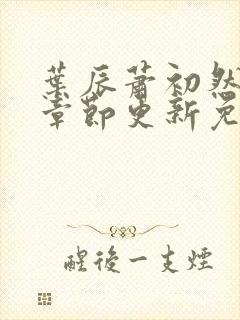 葉辰蕭初然
章節更新免
醒後一支煙